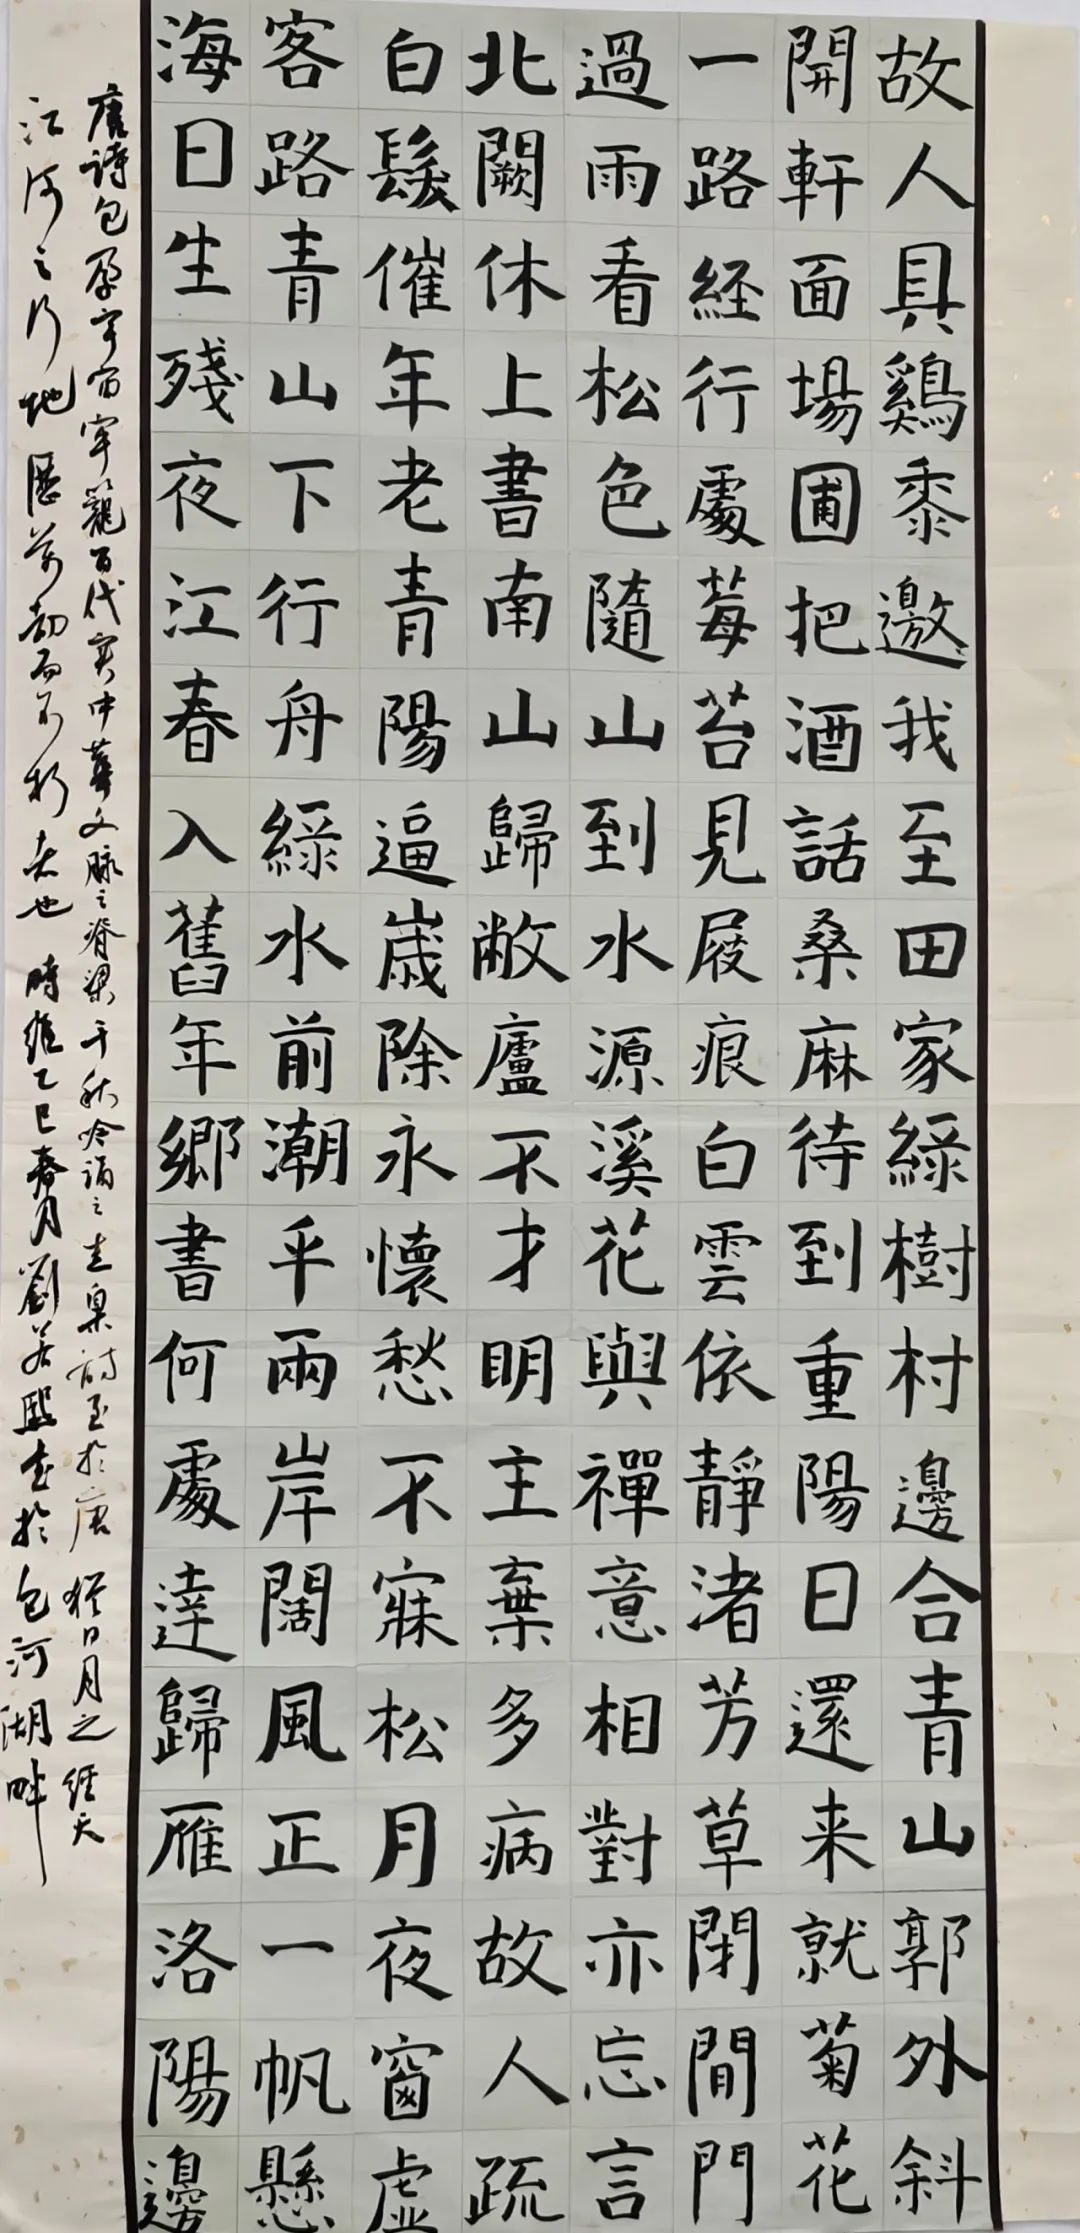 故人具鷄黍邀我至田家綠樹村邊合青山郭外斜
開軒面場圃把酒話桑麻待到重陽日還来就菊花
一路経行處莓苔見屐痕白雲依靜渚芳草閉閒門
過雨看松色隨山到水源溪花與禪意相對亦忘言
北闕休上書南山歸敝廬不才明主棄多病故人疏
白髮催年老青陽逼歲除永懷愁不寐松月夜窗虛
客路青山下行舟綠水前潮平兩岸闊風正一帆懸
海日生殘夜江春入舊年鄉書何處達歸雁洛陽邊
唐詩包孕宇宙牢籠百代實中華文脉之脊梁千秋吟誦之圭臬詩至於唐猶日月之經天
江河之行地歷萬劫而不朽者也時維乙巳春月劉若熙書於包河湖畔